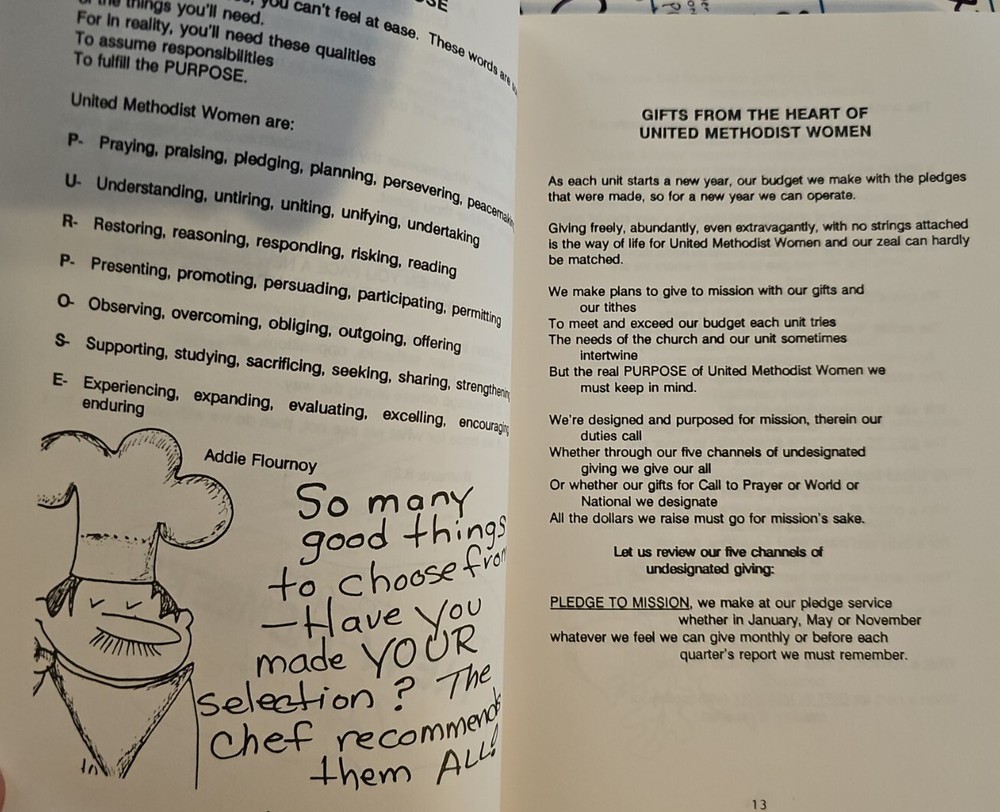 the things you'll need.
you can't feel at ease. These words are
For in reality, you'll need these qualities
To assume responsibilities
To fulfill the PURPOSE.
United Methodist Women are:
P- Praying, praising, pledging, planning, persevering,
U- Understanding, untiring, uniting, unifying, undertaking
R- Restoring, reasoning, responding, risking, reading
P- Presenting, promoting, persuading, participating, permitting
O- Observing, overcoming, obliging, outgoing, offering
S- Supporting, studying, sacrificing, seeking, sharing, strengthening
E- Experiencing, expanding, evaluating, excelling, encouraging
enduring
Addie Flournoy
So many
good things
to choose from
—Have you
made YOUR
selection? The
chef recommends
them ALL!
GIFTS FROM THE HEART OF
UNITED METHODIST WOMEN
As each unit starts a new year, our budget we make with the pledges
that were made, so for a new year we can operate.
Giving freely, abundantly, even extravagantly, with no strings attached
is the way of life for United Methodist Women and our zeal can hardly
be matched.
We make plans to give to mission with our gifts and
our tithes
To meet and exceed our budget each unit tries
The needs of the church and our unit sometimes
intertwine
But the real PURPOSE of United Methodist Women we
must keep in mind.
We're designed and purposed for mission, therein our
duties call
Whether through our five channels of undesignated
giving we give our all
Or whether our gifts for Call to Prayer or World or
National we designate
All the dollars we raise must go for mission's sake.
Let us review our five channels of
undesignated giving:
PLEDGE TO MISSION, we make at our pledge service
whether in January, May or November
whatever we feel we can give monthly or before each
quarter's report we must remember.
13